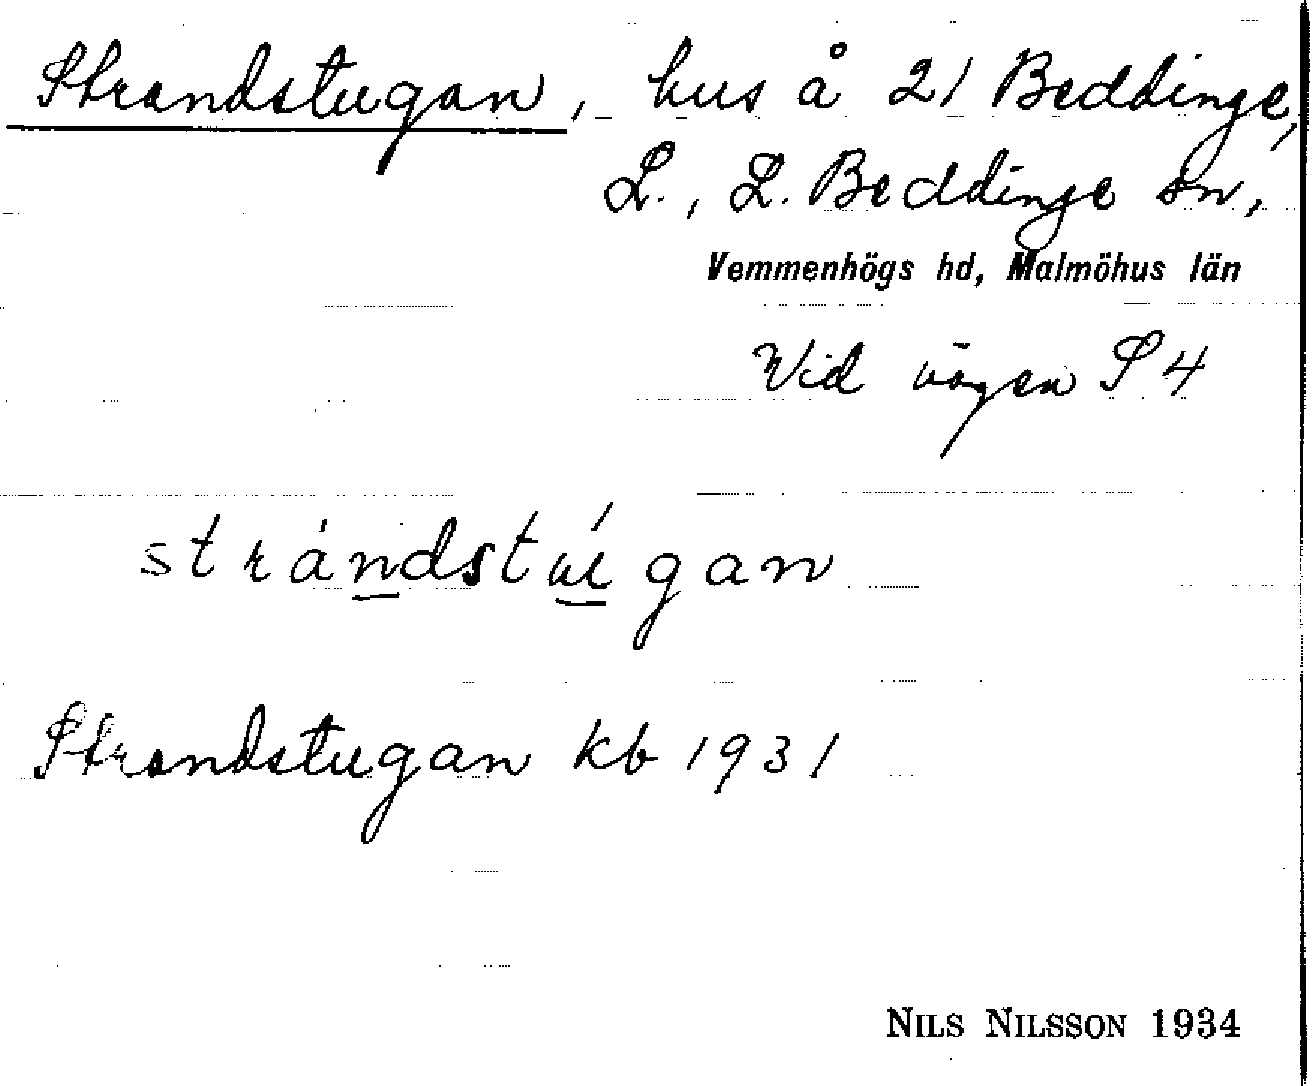 Strandstugan, hus å 21 Beddinge,
L., L. Beddinge sn,
Vemmenhögs hd, Malmöhus län
Vid vägen S 4
strándstúgan
Strandstugan kb 1931
NILS NILSSON 1934